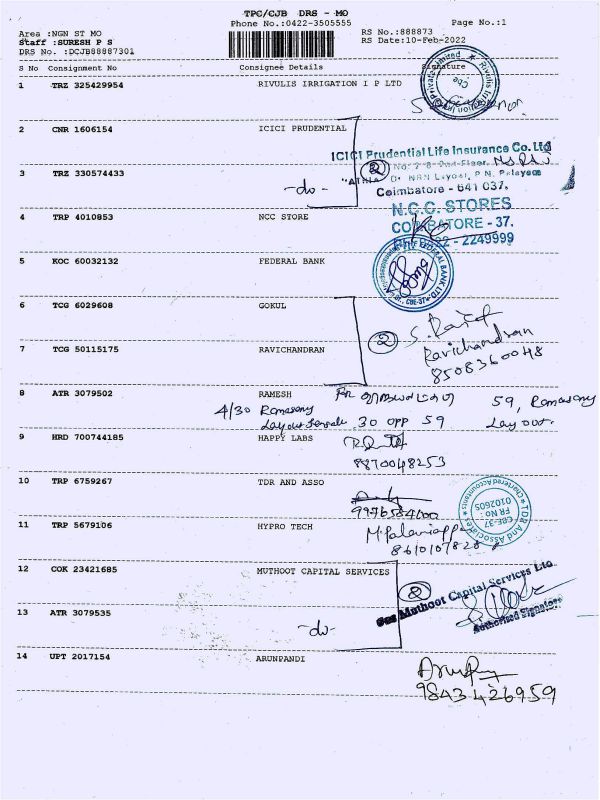 TPC/CJB DRS - MO
Phone No.:0422-3505555
Page No.:1
Area :NGN ST MO
Staff :SURESH P S
DRS No. :DCJB88887301
RS No.:888873
RS Date:10-Feb-2022
S No Consignment No Consignee Details Signature
1 TRZ 325429954 RIVULIS IRRIGATION I P LTD
2 CNR 1606154 ICICI PRUDENTIAL
ICICI Prudential Life Insurance Co. Ltd
2
3 TRZ 330574433 -do-
Coimbatore - 641 037.
N.C.C. STORES
4 TRP 4010853 NCC STORE
COIMBATORE - 37.
- 2249999
5 KOC 60032132 FEDERAL BANK
6 TCG 6029608 GOKUL
2
7 TCG 50115175 RAVICHANDRAN
Ravichandran
8508360048
8 ATR 3079502 RAMESH
4/30 Ramasamy 59, Ramasamy
30 opp 59 Layout.
9 HRD 700744185 HAPPY LABS
8870048253
10 TRP 6759267 TDR AND ASSO
TDR And Associates
Chartered Accountants
CBE-37
FR No :
010260S
11 TRP 5679106 HYPRO TECH
12 COK 23421685 MUTHOOT CAPITAL SERVICES
2
Muthoot Capital Services Ltd
13 ATR 3079535 -do-
Authorised Signatory
14 UPT 2017154 ARUNPANDI
9843426959